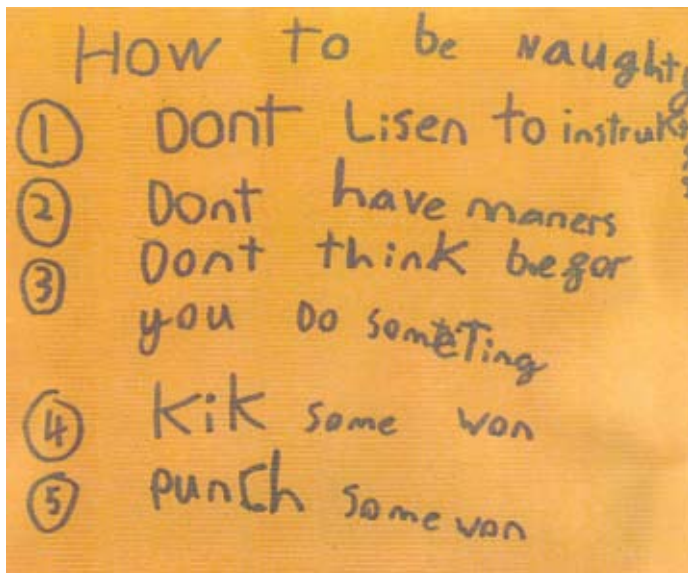 How to be Naughty
① Dont Lisen to instruks
② Dont have maners
③ Dont think befor
you Do someTing
④ Kik some won
⑤ punch some won